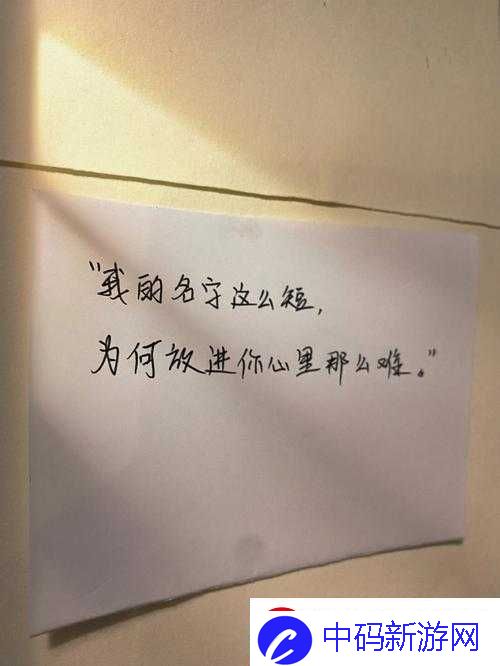 “我的名字这么短,
为何放进你心里那么难。”
中码新游网